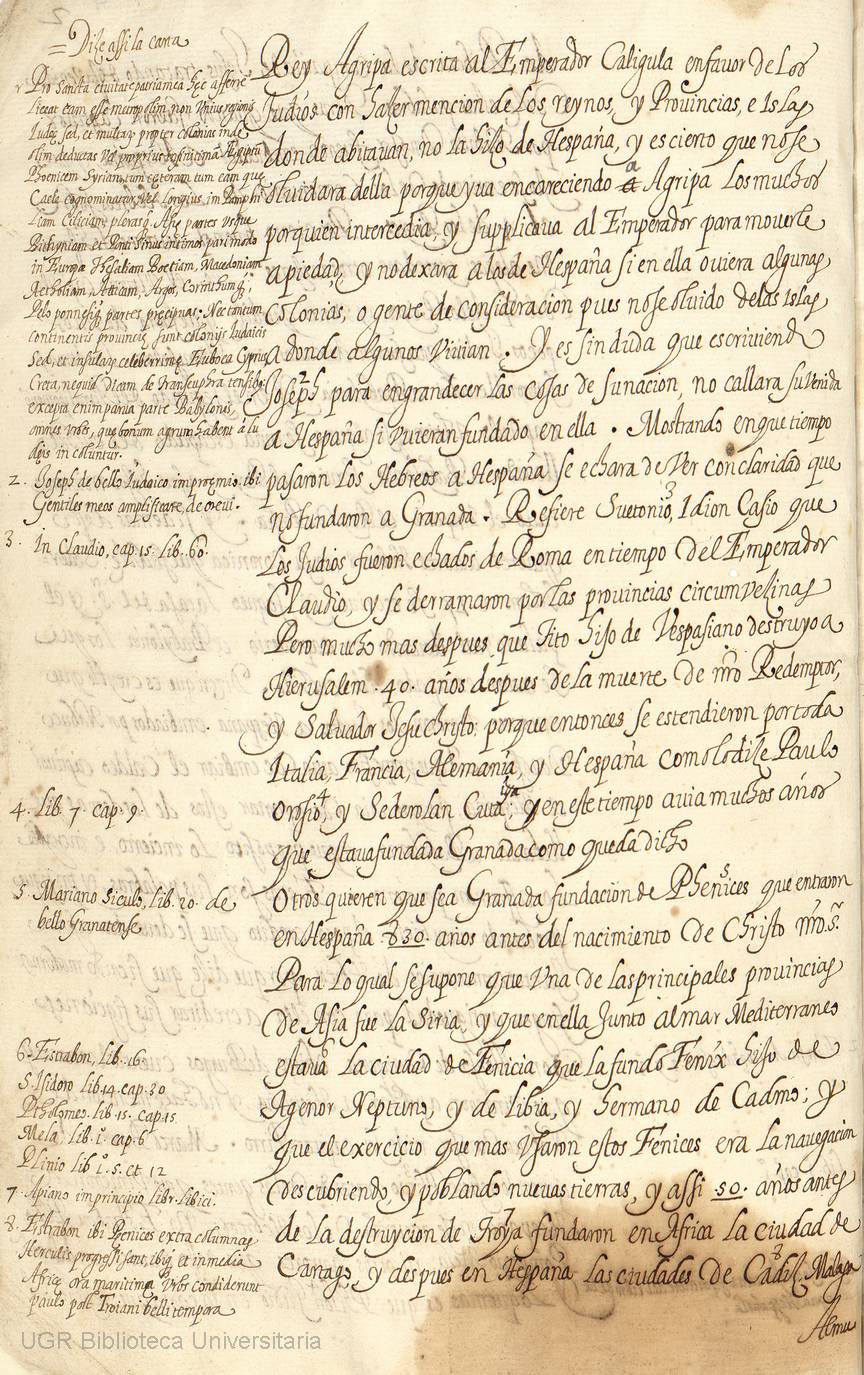 = Dize assi la carta
1 Pro Sancta civitate patria mea hęc asserere
liceat eam esse metropolim non unius regionis
Iudeę sed, et multarum propter colonias inde
olim deductas vel proprius Egiptum
Phoeniciam Syriam, tum exteram tum eam que
Caele cognominatur, vel longius, in Pamphi
liam Ciliciam, plerasq. Asię partes usque
Bithyniam et Ponti sinus intimos pari modo
in Europa Thesaliam Boetiam, Macedoniam
Aetholiam, Atticum, Argos, Corinthumq;
Peloponnesiq; partes pręcipuas; Nec tantum
continentis provincię, sunt colonijs Iudaicis
Sed, et insularum celeberrimę Euboea Cyprus
Creta, nequid dicam de transeuphratensibus
excepta enim parva parte Babylonis,
omnes urbes, que bonum agrum habent a Iu
dęis incoluntur.
2. Joseph de bello Iudaico im proęmio. ibi
Gentiles meos amplificare, decrevi.
3. In Claudio, cap. 15. Lib. 60.
4. Lib. 7. cap. 9.
5 Mariano Siculo, lib. 20. de
bello Granatense
6. Estrabon, Lib. 16.
S. Isidoro lib. 14. cap. 30
Ptholomeo. lib. 15. cap. 15
Mela, lib. 1. cap. 6
Plinio lib 1. 5. et 12
7 Apiano im principio libr. libici.
8. Estrabon ibi Phenices extra columnas
Herculis progressi sunt, ibiq; et in media
Africę ora maritima Urbes condiderunt
paulo post Troiani belli tempora
Rey Agripa escrita al Emperador Caligula en favor de Los
Judios con hazer mencion de Los reynos, y Provincias, e Islas
donde abitavan, no la hizo de Hespaña, y es cierto que no se
olvidara della porque yva encareciendo a Agripa Los muchos
por quien intercedia, y supplicava al Emperador para moverle
a piedad, y no dexara a los de Hespaña si en ella oviera algunas
Colonias, o gente de consideracion pues no se olvido de las Islas
a donde algunos Vivian. Y es sin duda que escriviendo
Joseph 2 para engrandecer las cosas de su nacion, no callara su venida
a Hespaña si uvieran fundado en ella. Mostrando en que tiempo
pasaron Los Hebreos a Hespaña se echara de Ver con claridad que
no fundaron a Granada. Refiere Suetonio 3, I dion Casio que
Los Judios fueron echados de Roma en tiempo del Emperador
Claudio, y se derramaron por las provincias circumvezinas
Pero mucho mas despues que Tito hijo de Vespasiano destruyo a
Hierusalem .40. años despues de la muerte de nro Redemptor,
y Salvador Jesu christo: porque entonces se estendieron por toda
Italia, Francia, Alemania, y Hespaña como lo dize Paulo
orosio 4, y Sederolan y en este tiempo avia muchos años
que estava fundada Granada como queda dicho
Otros quieren que sea Granada fundacion de Phenices 5 que entraron
en Hespaña 830. años antes del nacimiento de Christo nro Sr.
Para Lo qual se supone que Una de las principales provincias
de Asia fue La Siria, y que en ella Junto al mar Mediterraneo
estava 6 La ciudad de Fenicia que la fundo Fenix hijo de
Agenor Neptuno, y de libia, y hermano de Cadmo; y
que el exercicio que mas Usaron estos Fenices era La navegacion
descubriendo, y poblando nuevas tierras, y assi 50. años antes
de La destruycion de Troya 7 fundaron en Africa La ciudad de
Cartago, y despues en Hespaña Las ciudades de Cadiz 8, Malaga
Almu
UGR Biblioteca Universitaria